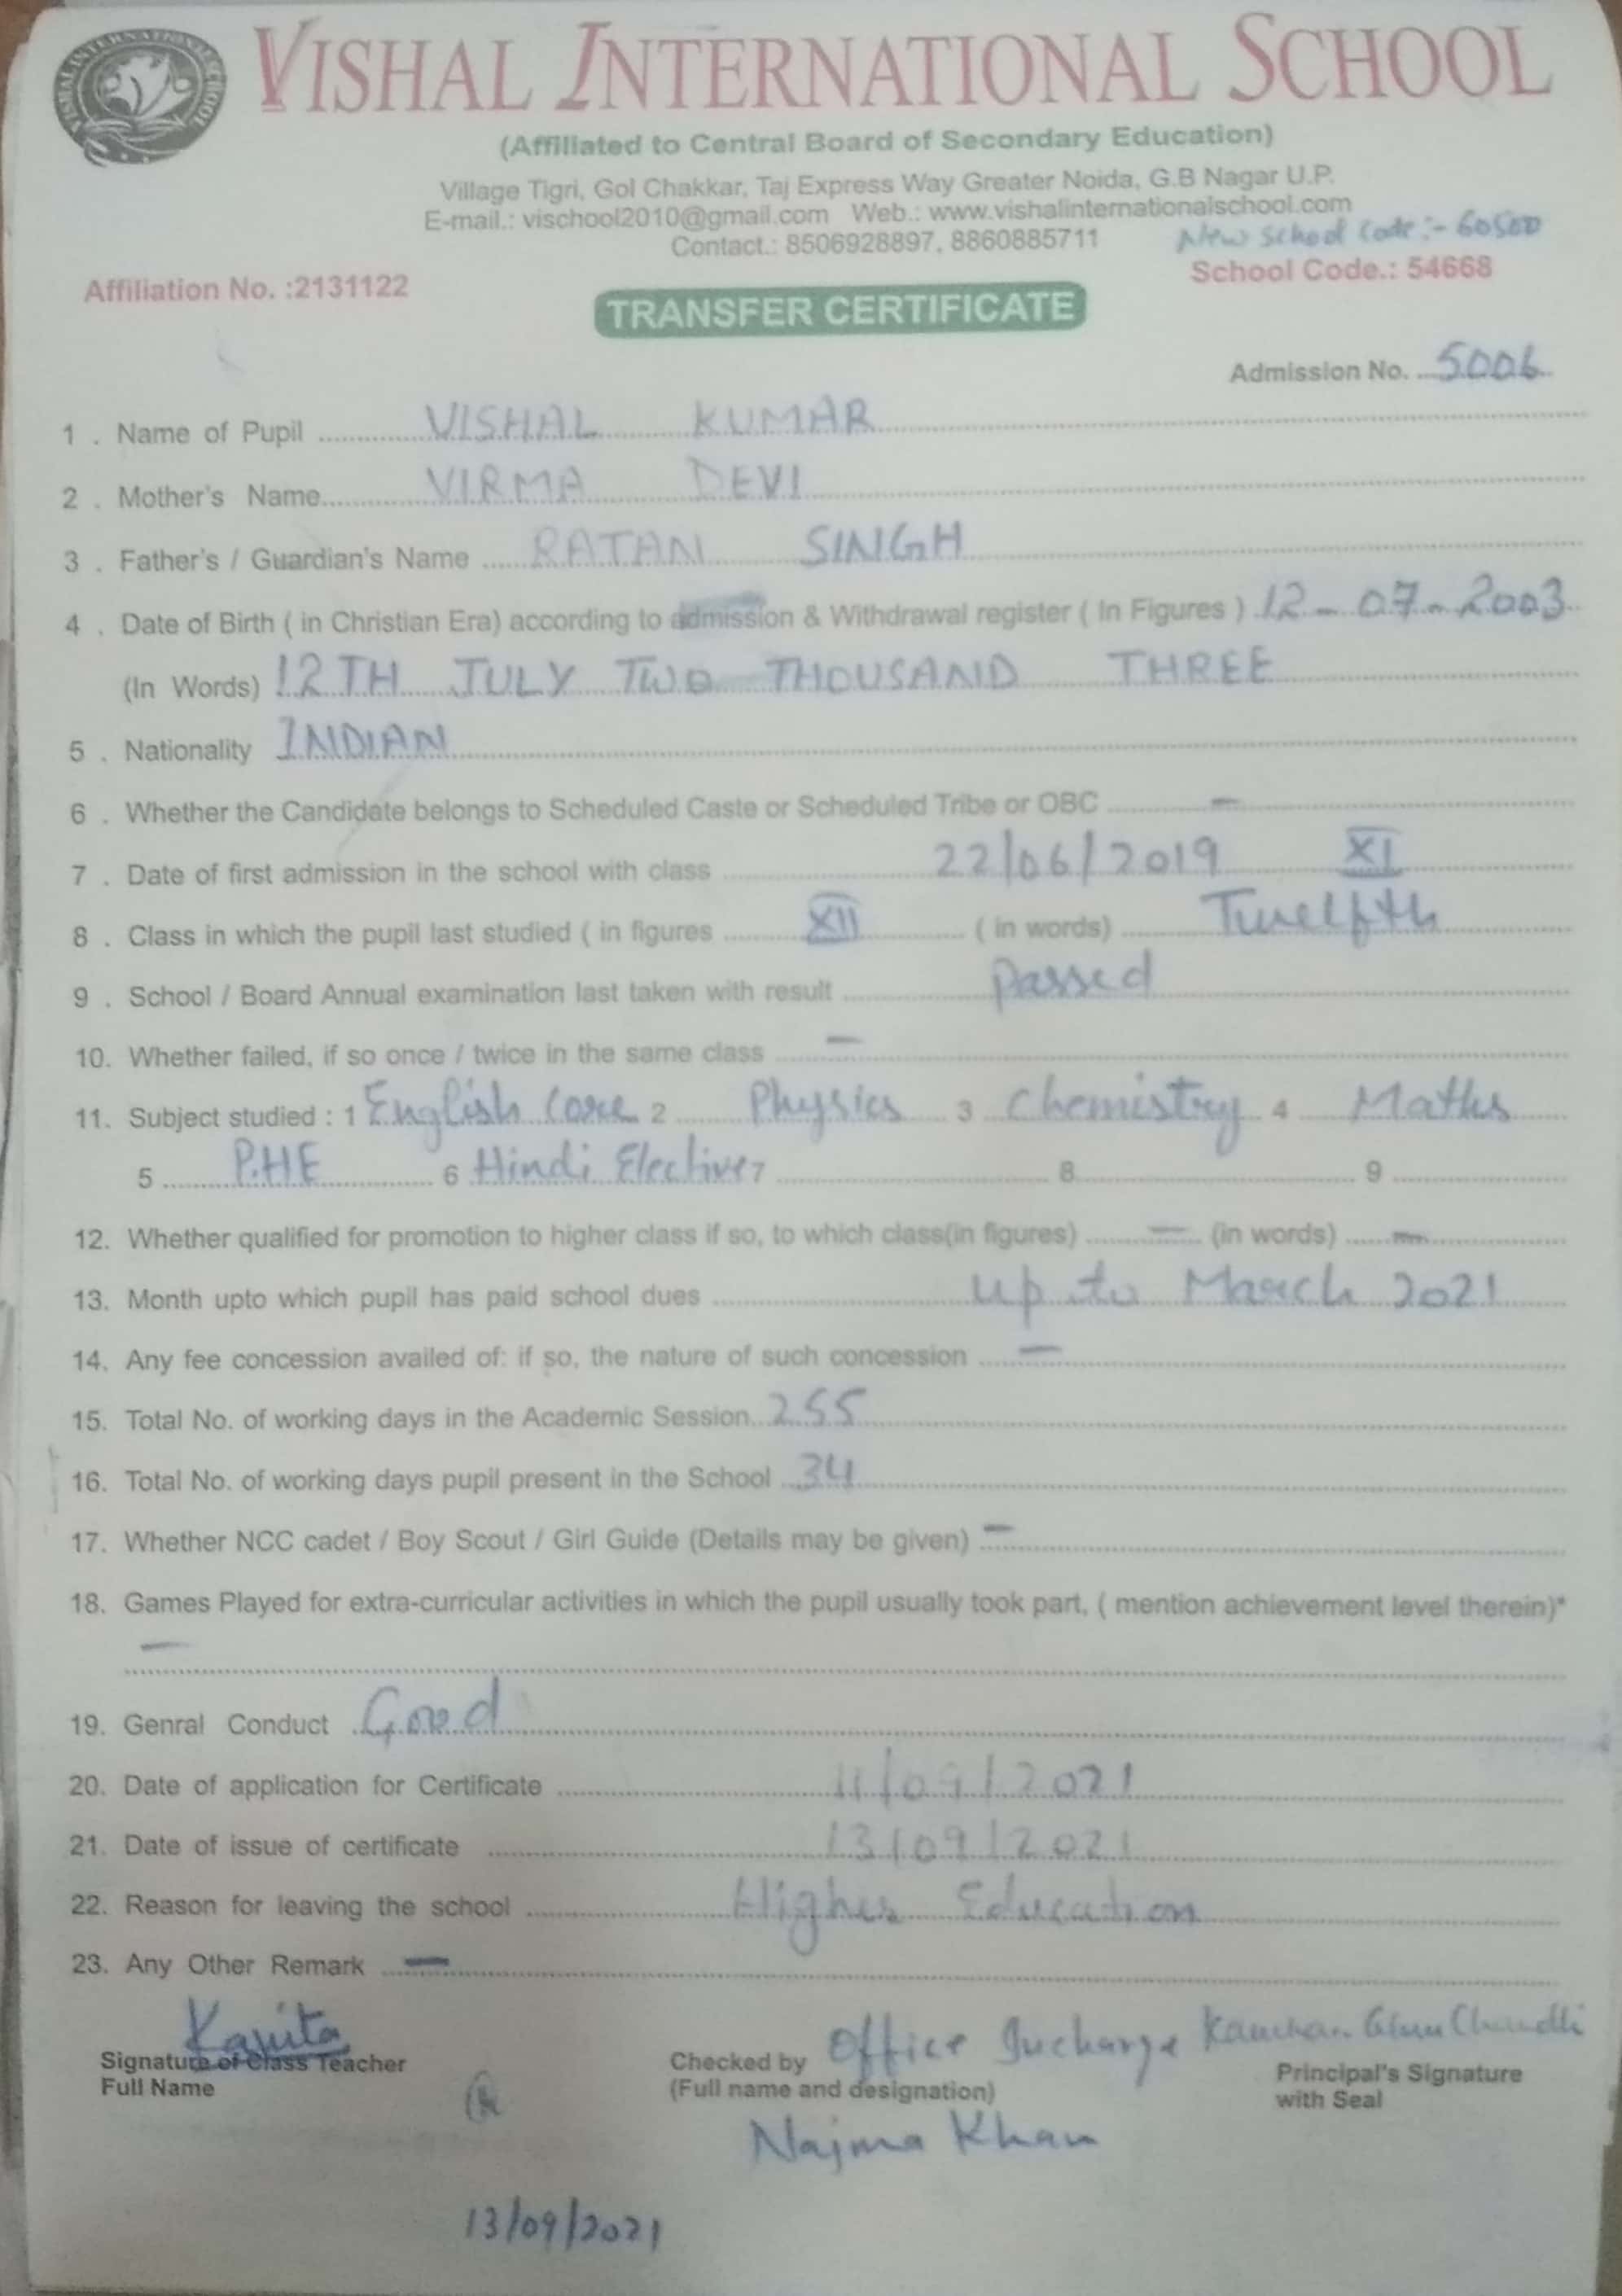 VISHAL INTERNATIONAL SCHOOL
VISHAL INTERNATIONAL SCHOOL
(Affiliated to Central Board of Secondary Education)
Village Tigri, Gol Chakkar, Taj Express Way Greater Noida, G.B Nagar U.P.
E-mail.: vischool2010@gmail.com Web.: www.vishalinternationalschool.com
Contact.: 8506928897, 8860885711
New School Code:- 60500
Affiliation No. :2131122
School Code.: 54668
TRANSFER CERTIFICATE
Admission No. 5006
1 . Name of Pupil VISHAL KUMAR
2 . Mother's Name VIRMA DEVI
3 . Father's / Guardian's Name RATAN SINGH
4 . Date of Birth ( in Christian Era) according to admission & Withdrawal register ( In Figures ) 12-07-2003
(In Words) 12TH JULY TWO THOUSAND THREE
5 . Nationality INDIAN
6 . Whether the Candidate belongs to Scheduled Caste or Scheduled Tribe or OBC —
7 . Date of first admission in the school with class 22/06/2019 XI
8 . Class in which the pupil last studied ( in figures XII ( in words) Twelfth
9 . School / Board Annual examination last taken with result passed
10. Whether failed, if so once / twice in the same class —
11. Subject studied : 1 English Core 2 Physics 3 Chemistry 4 Maths
5 P.HE 6 Hindi Elective 7 8 9
12. Whether qualified for promotion to higher class if so, to which class(in figures) — (in words) —
13. Month upto which pupil has paid school dues up to March 2021
14. Any fee concession availed of: if so, the nature of such concession —
15. Total No. of working days in the Academic Session 255
16. Total No. of working days pupil present in the School 34
17. Whether NCC cadet / Boy Scout / Girl Guide (Details may be given) —
18. Games Played for extra-curricular activities in which the pupil usually took part, ( mention achievement level therein)*
—
19. Genral Conduct Good
20. Date of application for Certificate 11/09/2021
21. Date of issue of certificate 13/09/2021
22. Reason for leaving the school Higher Education
23. Any Other Remark —
Kavita
Signature of Class Teacher
Full Name
Checked by Office Incharge
(Full name and designation)
Najma Khan
Kanchan
Principal's Signature
with Seal
13/09/2021